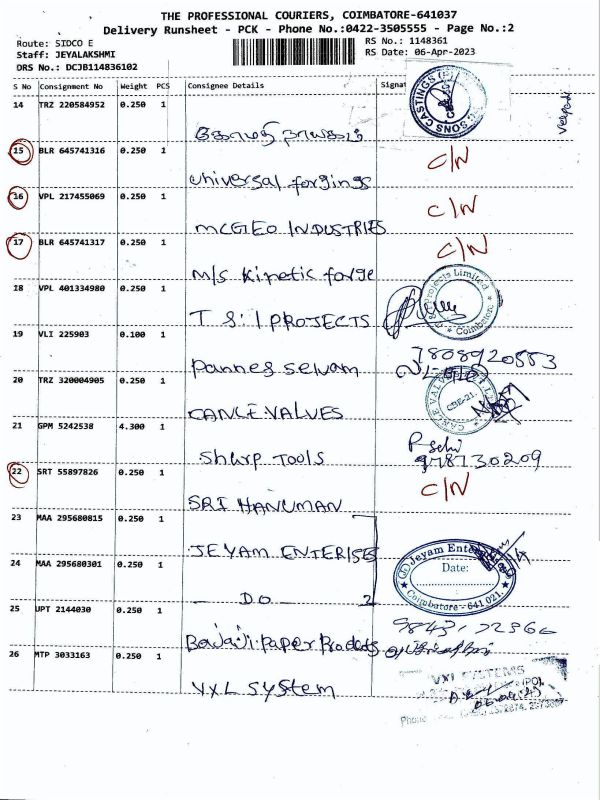 THE PROFESSIONAL COURIERS, COIMBATORE-641037
Delivery Runsheet - PCK - Phone No.:0422-3505555 - Page No.:2
Route: SIDCO E
RS No.: 1148361
Staff: JEYALAKSHMI
RS Date: 06-Apr-2023
DRS No.: DCJB114836102
S No Consignment No Weight PCS Consignee Details Signat
14 TRZ 220584952 0.250 1
SONS CASTINGS (P)
கோமதி நாயகம்
15 BLR 645741316 0.250 1
C/N
Universal forgings
16 VPL 217455069 0.250 1
C/N
MCGEO INDUSTRIES
17 BLR 645741317 0.250 1
C/N
M/s Kinetic forge
18 VPL 401334980 0.250 1
Projects Limited
Coimbatore
T S I PROJECTS
19 VLI 225903 0.100 1
Panner selvam
7808920553
20 TRZ 320004905 0.250 1
CBE-21.
CANCE VALVES
21 GPM 5242538 4.300 1
Sharp TOOLS
9787730209
22 SRT 55897826 0.250 1
C/N
SRI HANUMAN
23 MAA 295680815 0.250 1
JEYAM ENTERISES
Jeyam Enterprises
Date:
Coimbatore - 641 021.
24 MAA 295680301 0.250 1
DO 2
25 UPT 2144030 0.250 1
Bawaji Paper Products
26 MTP 3033163 0.250 1
VXL SYSTEMS
VXL System
Phone